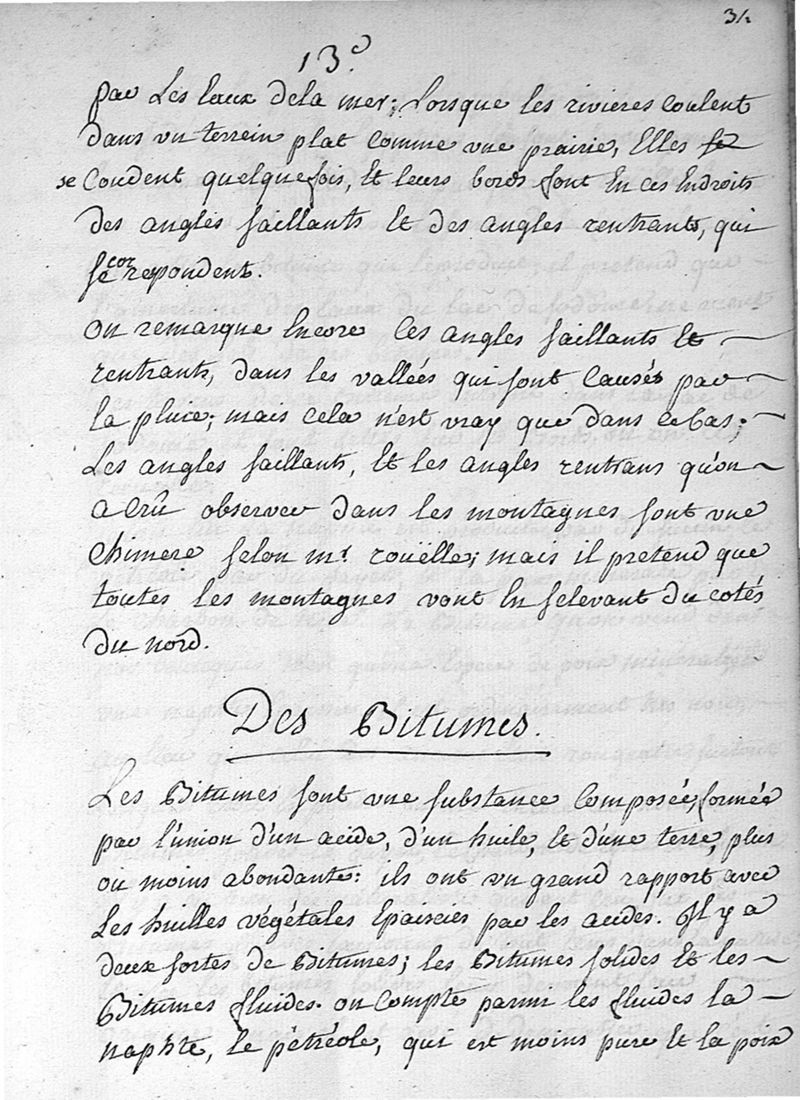 3/.
13.e
par Les Eaux dela mer; Lorsque les rivieres Coulent
dans vn terrein plat Comme vne prairie, Elles se
se Coudent quelquefois, Et leurs bords sont En ces Endroits
des angles saillants Et des angles rentrants, qui
se correpondent.
on remarque Encore Ces angles saillants Et
rentrants, dans les vallées qui sont Causés par
la pluie; mais cela n'est vray que dans ce bas;
Les angles saillants, Et les angles rentrans qu'on
a Crû observer dans les montagnes sont vne
Chimere selon mr. rouëlle; mais il pretend que
toutes les montagnes vont En selevant du cotés
du nord.
Des Bitumes.
Les Bitumes sont vne substance Composée, formée
par l'union d'un acide, d'un huile, Et d'une terre, plus
ou moins abondante: ils ont vn grand rapport avec
Les huilles végétales Epaissies par les acides. Il y a
deux sortes de Bitumes; les Bitumes solides Et les
Bitumes fluides. on Compte parmi les fluides la
naphte, le pétréole, qui est moins pure Et la poix